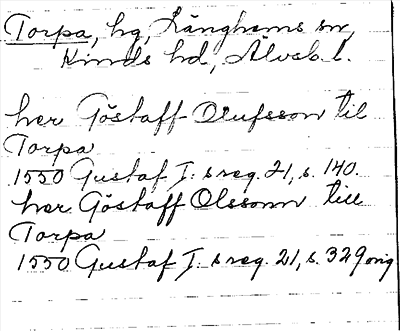 Torpa, hg, Länghems sn,
Kinds hd, Älvsb. l.
her Göstaff Olufsson til
Torpa
1550 Gustaf I:s reg. 21, s. 140.
her Göstaff Olssonn till
Torpa
1550 Gustaf I:s reg. 21, s. 329 orig